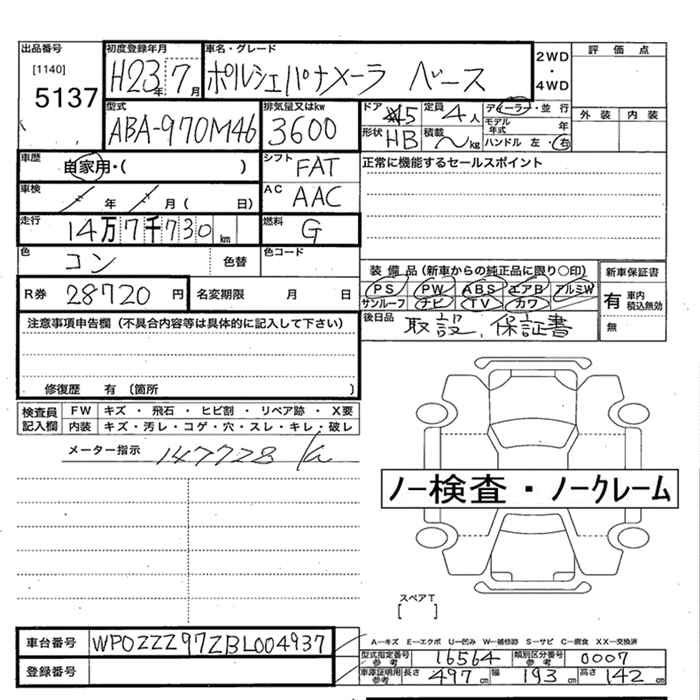 出品番号 初度登録年月 車名・グレード 2WD・4WD 評価点
[1140] 5137 H23年7月 ポルシェパナメーラ ベース
型式 排気量又はkw ドア 定員 ディーラー・並行 外装 内装
ABA-970M46 3600 5 4人 モデル年式 年
形状 HB 積載 〜kg ハンドル 左・右
車歴 自家用・( ) シフト FAT 正常に機能するセールスポイント
車検 年 月( 日) AC AAC
走行 14万7千730km 燃料 G
色 コン 色替 色コード
装備品(新車からの純正品に限り○印) 新車保証書
R券 28720円 名変期限 月 日 PS PW ABS エアB アルミW 有 車内積込無効
サンルーフ ナビ TV カワ 無
注意事項申告欄(不具合内容等は具体的に記入して下さい) 後日品 取説、保証書
修復歴 有 〔箇所 〕
検査員記入欄 FW キズ・飛石・ヒビ割・リペア跡・X要
内装 キズ・汚レ・コゲ・穴・スレ・キレ・破レ
メーター指示 147728 km
ノー検査・ノークレーム
スペアT
[ ]
車台番号 WP0ZZZ97ZBL004937 A—キズ E—エクボ U—凹み W—補修跡 S—サビ C—腐食 XX—交換済
型式指定番号 参考 16564 類別区分番号 参考 0007
登録番号 車庫証明用参考 長さ 497cm 幅 193cm 高さ 142cm